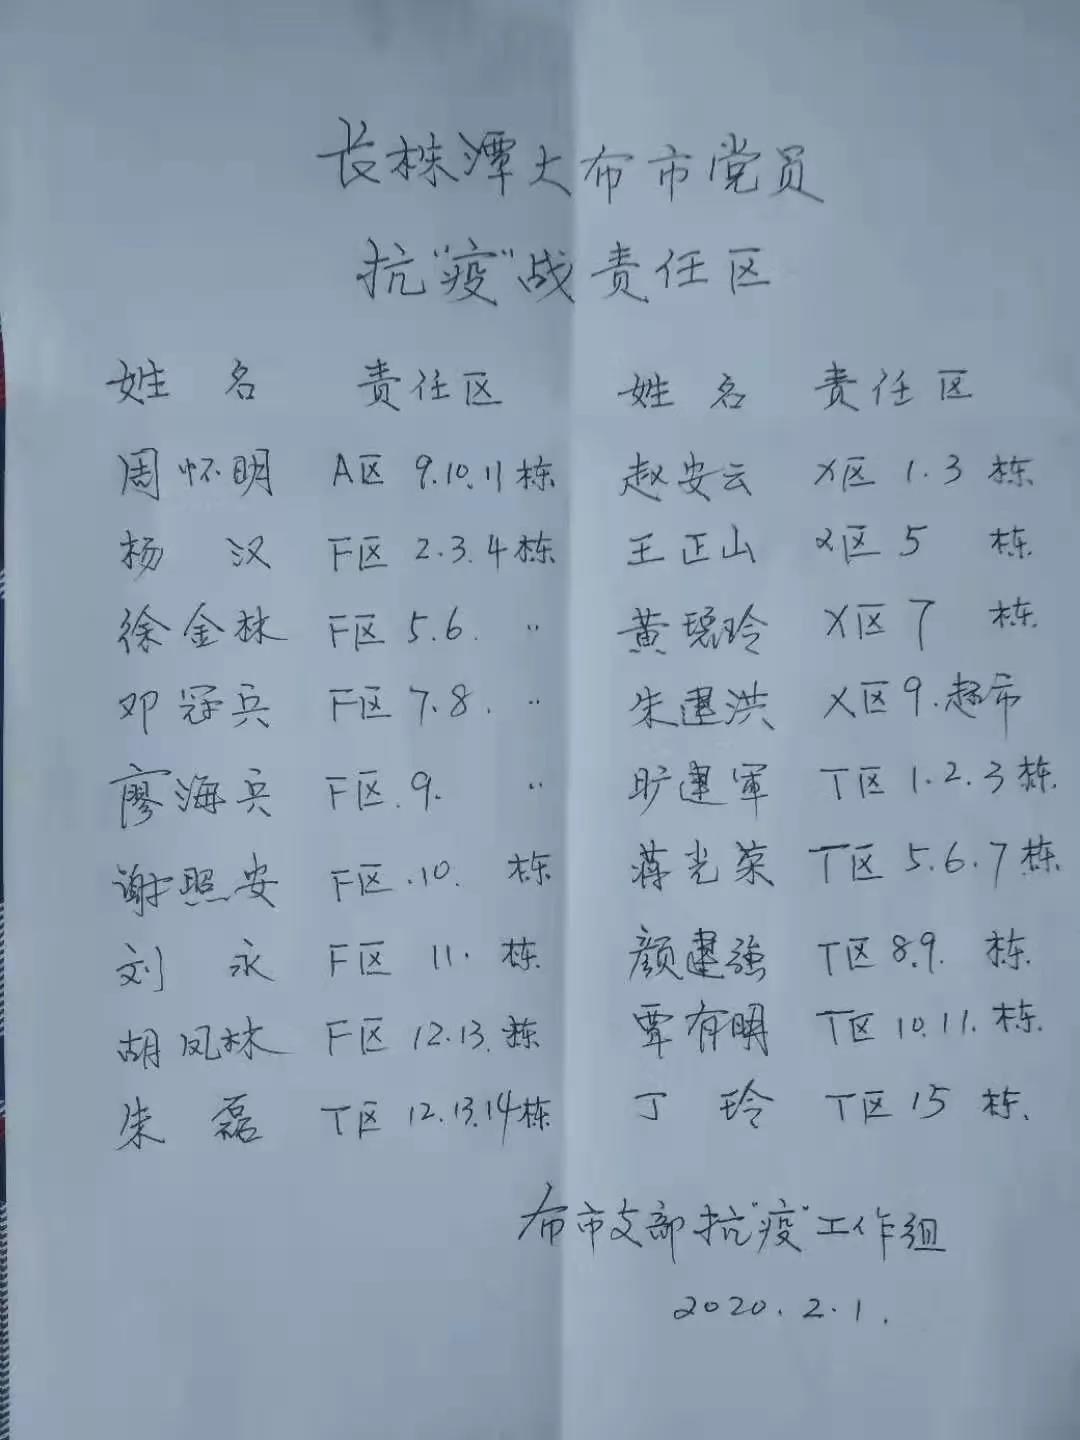 长株潭大布市党员
抗“疫”战责任区
姓 名 责任区 姓 名 责任区
周怀明 A区 9.10.11栋 赵安云 X区 1.3 栋
杨 汉 F区 2.3.4栋 王正山 X区 5 栋
徐金林 F区 5.6. 〃 黄瑰玲 X区 7 栋
邓冠兵 F区 7.8. 〃 朱建洪 X区 9.超市
廖海兵 F区.9. 〃 旷建軍 T区 1.2.3栋.
谢照安 F区.10. 栋 蒋光荣 T区 5.6.7栋.
刘 永 F区 11. 栋. 颜建強 T区 8.9. 栋.
胡凤林 F区 12.13.栋 覃有明 T区 10.11.栋.
朱 磊 T区 12.13.14栋 丁 玲 T区 15 栋.
布市支部抗“疫”工作组
2020.2.1.